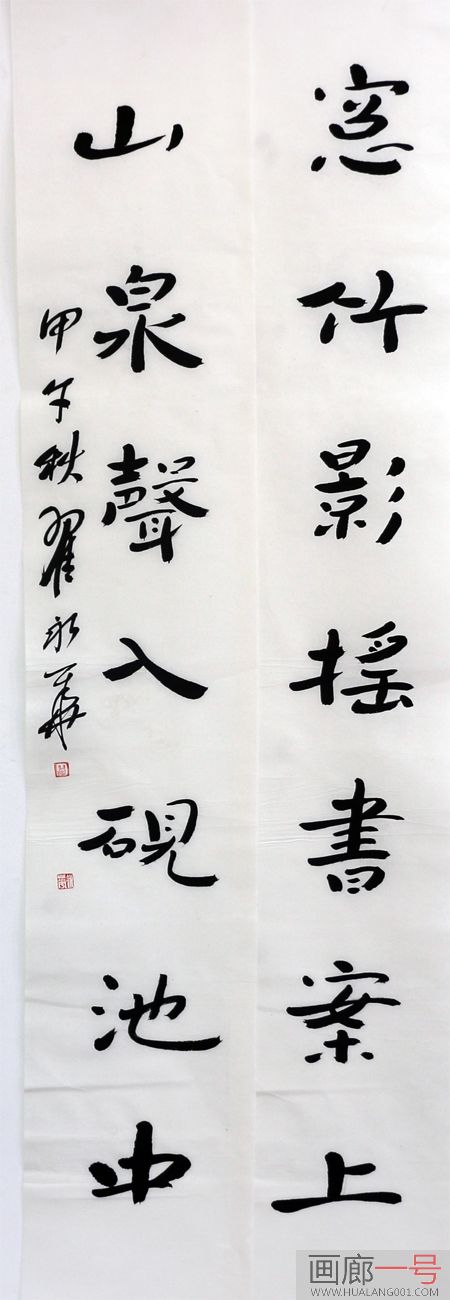 窓竹影摇書案上
山泉聲入硯池中
甲午秋翟永華
画廊一号
WWW.HUALANG001.COM